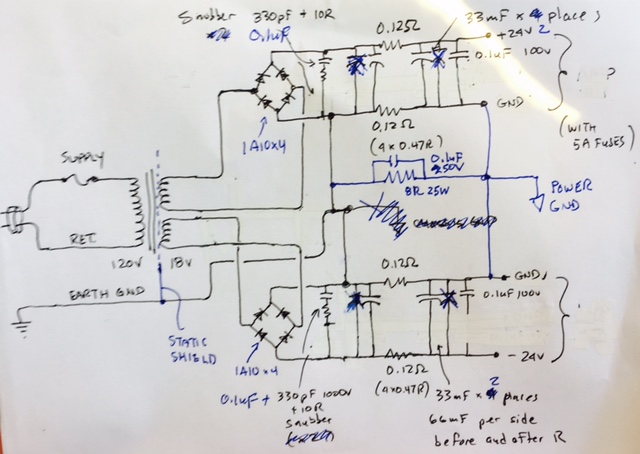 Snubber 330pF + 10R
0.1uF
0.12Ω
33mF x places
+24V 2
0.1uF 100V
?
GND
0.12Ω
(4 x 0.47R)
(WITH
5A FUSES)
1A10x4
SUPPLY
0.1uF
250V
8R 25W
POWER
GND
RET.
120V
18V
EARTH GND
0.12Ω
GND
0.1uF 100V
STATIC
SHIELD
1A10x4
-24V
0.12Ω
(4x0.47R)
0.1uF + 330pF 1000V
+ 10R
Snubber
33mF x 2 places
66mF per side
before and after R